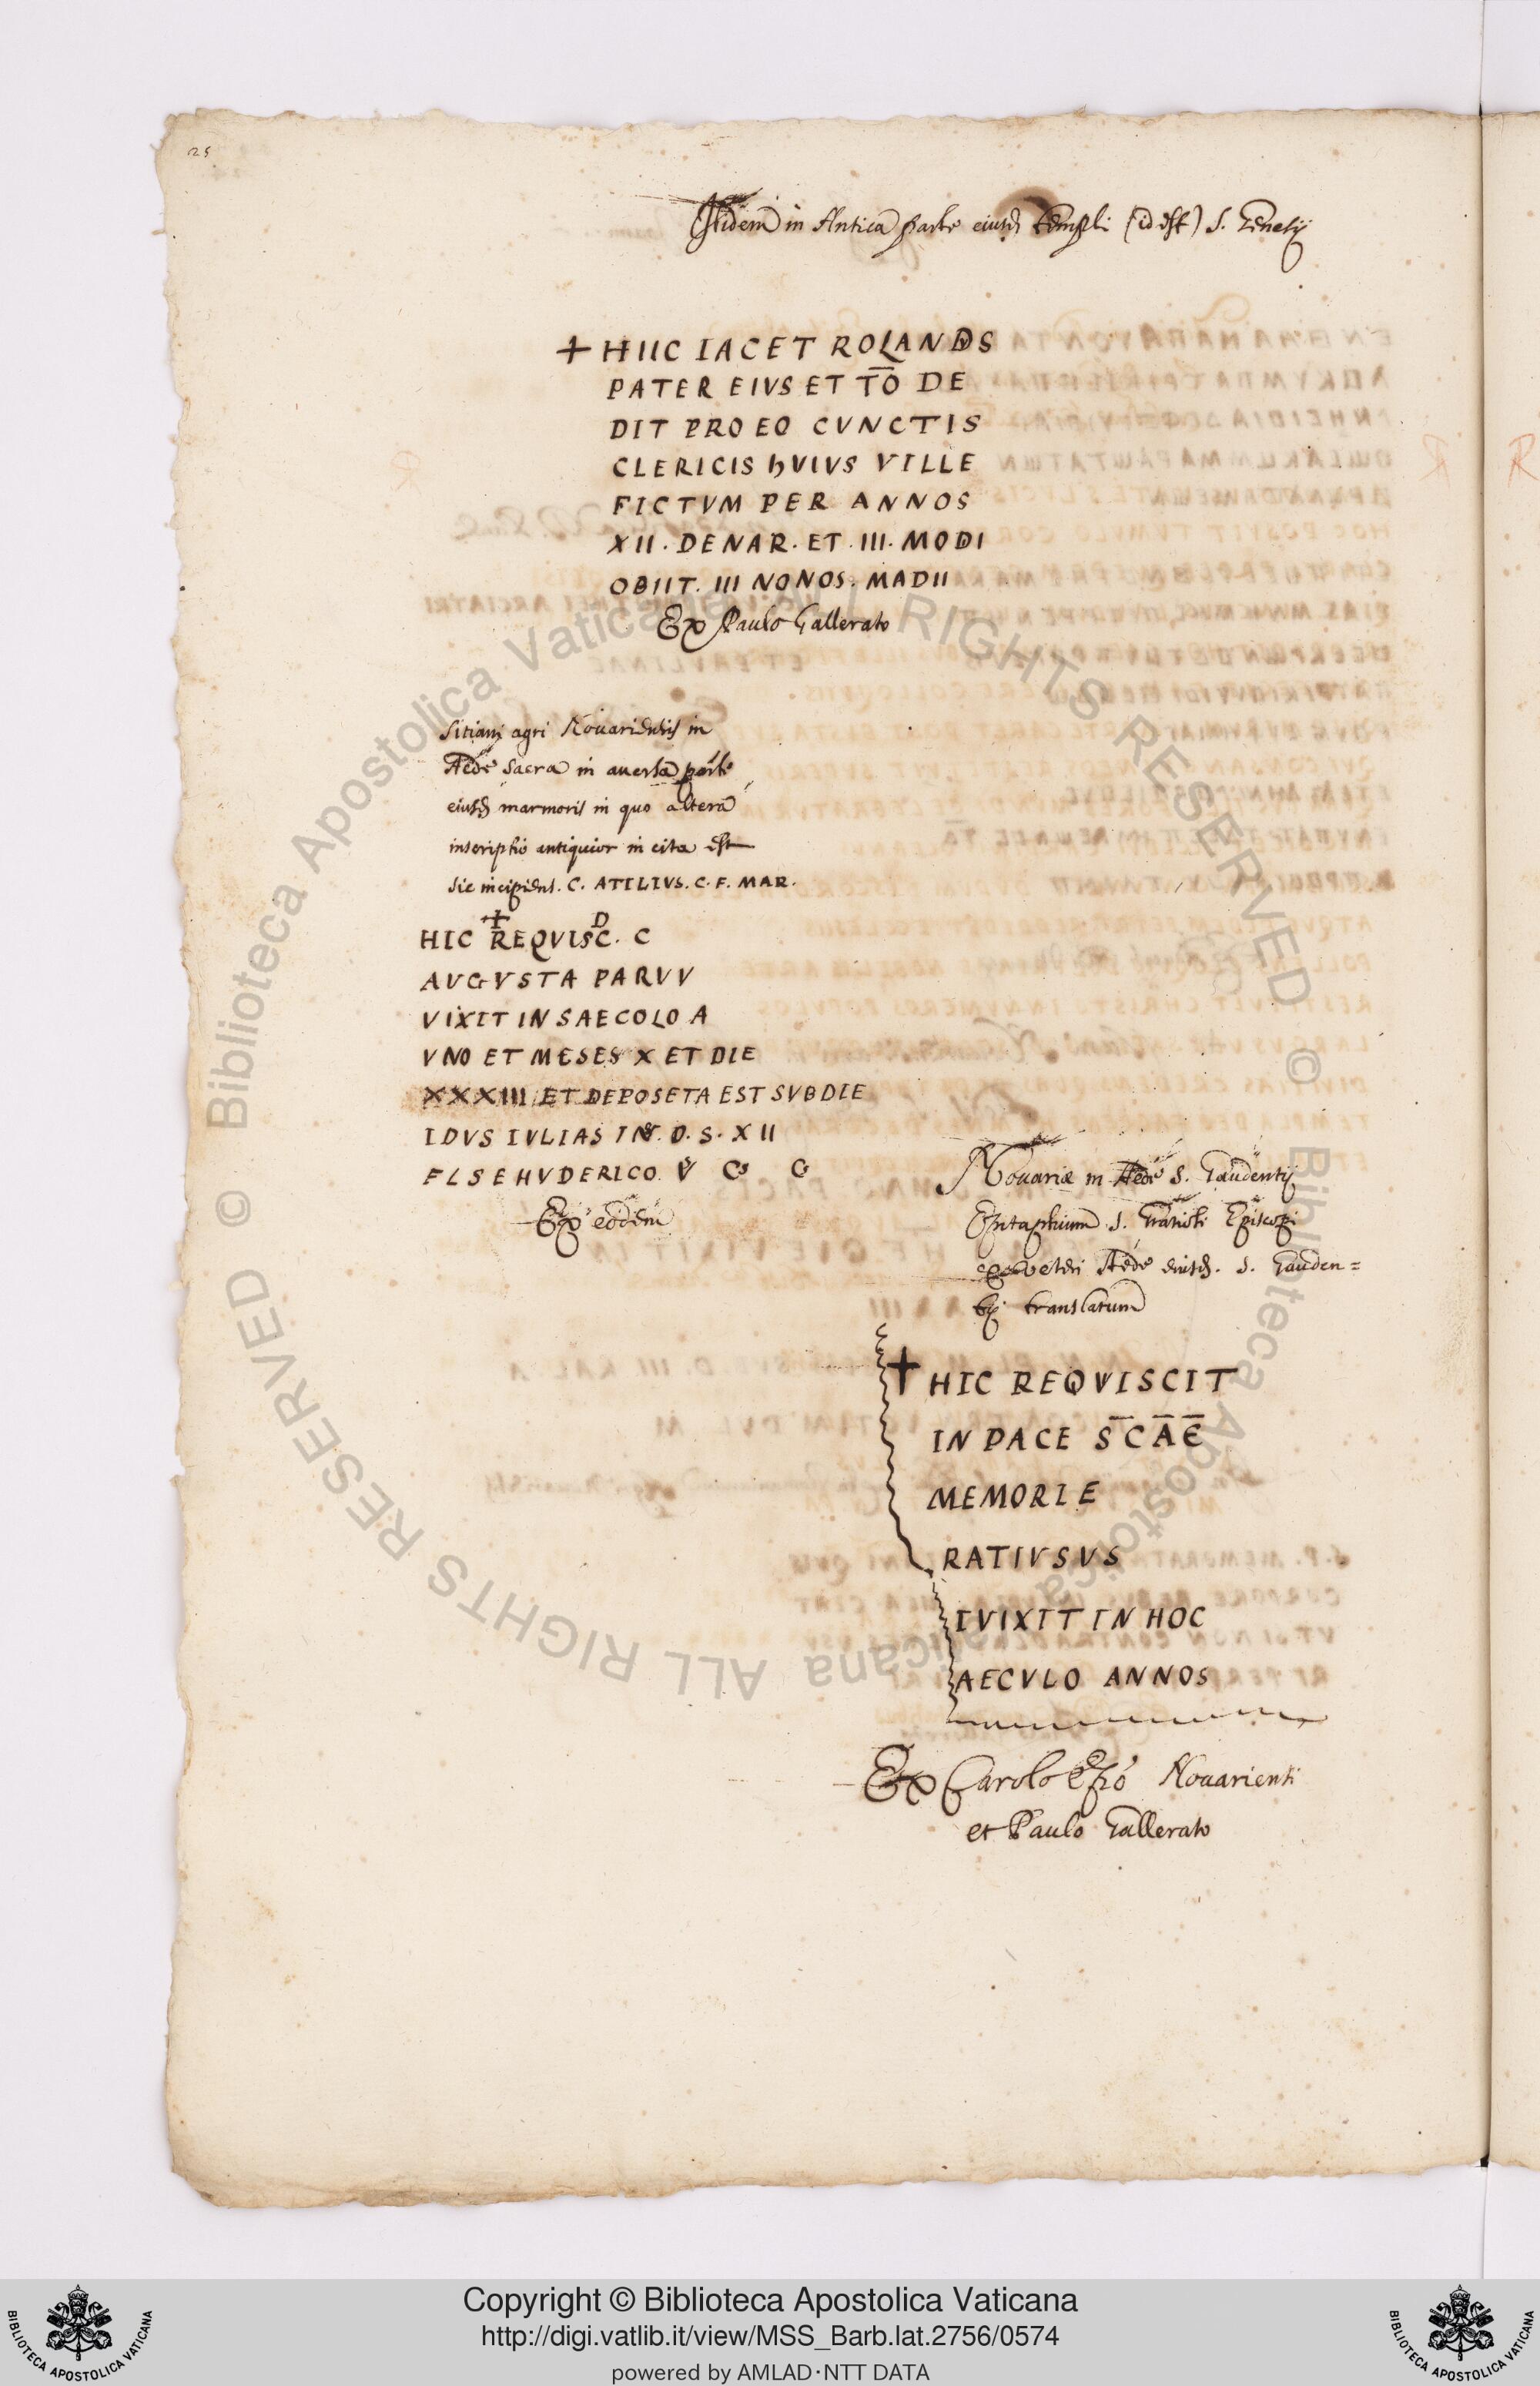 25
Itidem in Antica parte eiusd templi (id est) S. Genesij
+ HIIC IACET ROLANDS
PATER EIVS ET T̅O̅ DE
DIT PRO EO CVNCTIS
CLERICIS hVIVS VILLE
FICTVM PER ANNOS
XII. DENAR. ET. III. MODI
OBIIT. III NONOS. MADII
Ex Paulo Gallerato
Sitiani agri Nouariensis in
Aede Sacra in auersa parte
eiusd marmoris in quo altera
inscriptio antiquior incisa est
sic incipiens. C. ATILIVS. C. F. MAR.
+ D
HIC REQVISC. C
AVGVSTA PARVV
VIXIT IN SAECOLO A
VNO ET MESES X ET DIE
XXXIII ET DEPOSETA EST SVBDIE
IDVS IVLIAS IN. D. S. XII
FLSEHVDERICO. V C G
Ex eodem
Nouariæ in Aede S. Gaudentij
Epitaphium S. Episcopi
ex veteri Aede eiusd. S. Gauden=
tij translatum
+ HIC REQVISCIT
IN PACE S̅CA̅E̅
MEMORIE
RATIVSVS
IVIXIT IN HOC
AECVLO ANNOS
Ex Carolo Nouariensi
et Paulo Gallerato
© Biblioteca Apostolica Vaticana ALL RIGHTS RESERVED
© Biblioteca Apostolica Vaticana ALL RIGHTS RESERVED
BIBLIOTECA APOSTOLICA VATICANA
Copyright © Biblioteca Apostolica Vaticana
http://digi.vatlib.it/view/MSS_Barb.lat.2756/0574
powered by AMLAD·NTT DATA
BIBLIOTECA APOSTOLICA VATICANA